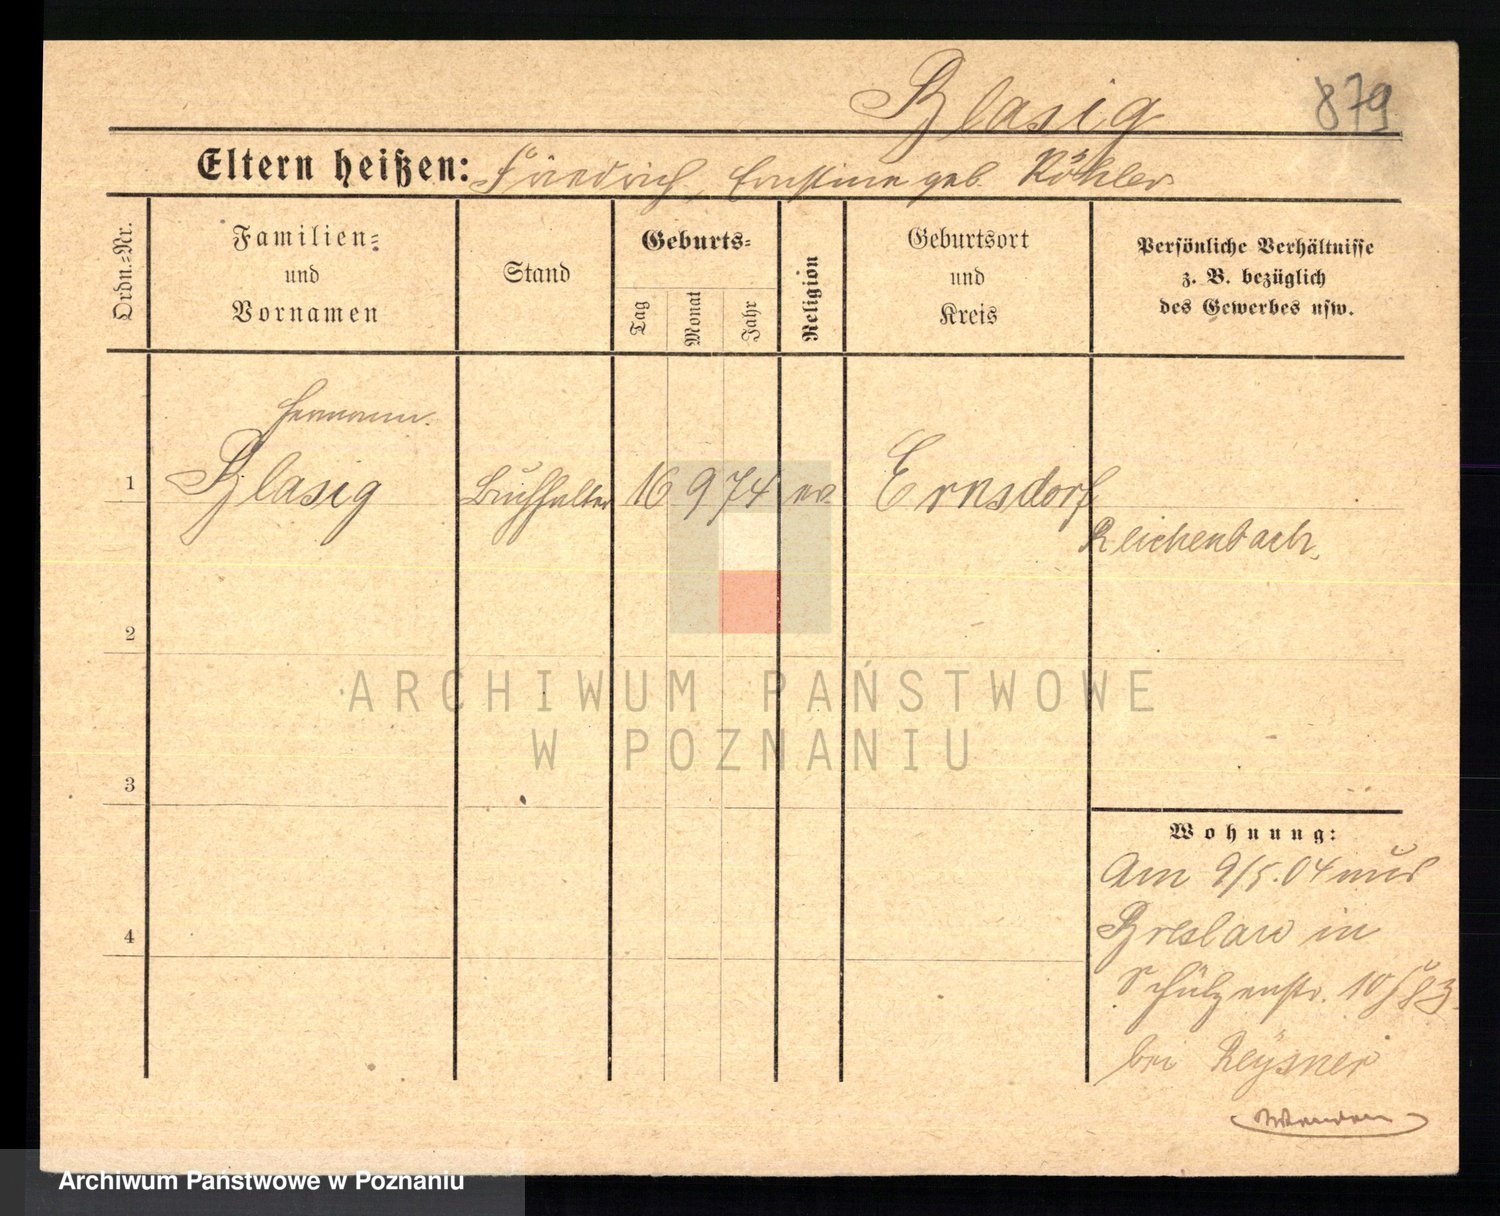 Blasig 879
Eltern heißen: Friedrich, Ernstine geb. Köhler
Ordn.-Nr.
Familien-
und
Vornamen
Stand
Geburts-
Tag
Monat
Jahr
Religion
Geburtsort
und
Kreis
Persönliche Verhältnisse
z. B. bezüglich
des Gewerbes usw.
Hermann.
1 Blasig Buchhalter 16 9 74 ev. Ernsdorf
Reichenbach
2
ARCHIWUM PAŃSTWOWE
W POZNANIU
3
Wohnung:
Am 9/5.04 aus
4 Breslau in
Schützenstr. 10
bei Reysner
Wenden
Archiwum Państwowe w Poznaniu